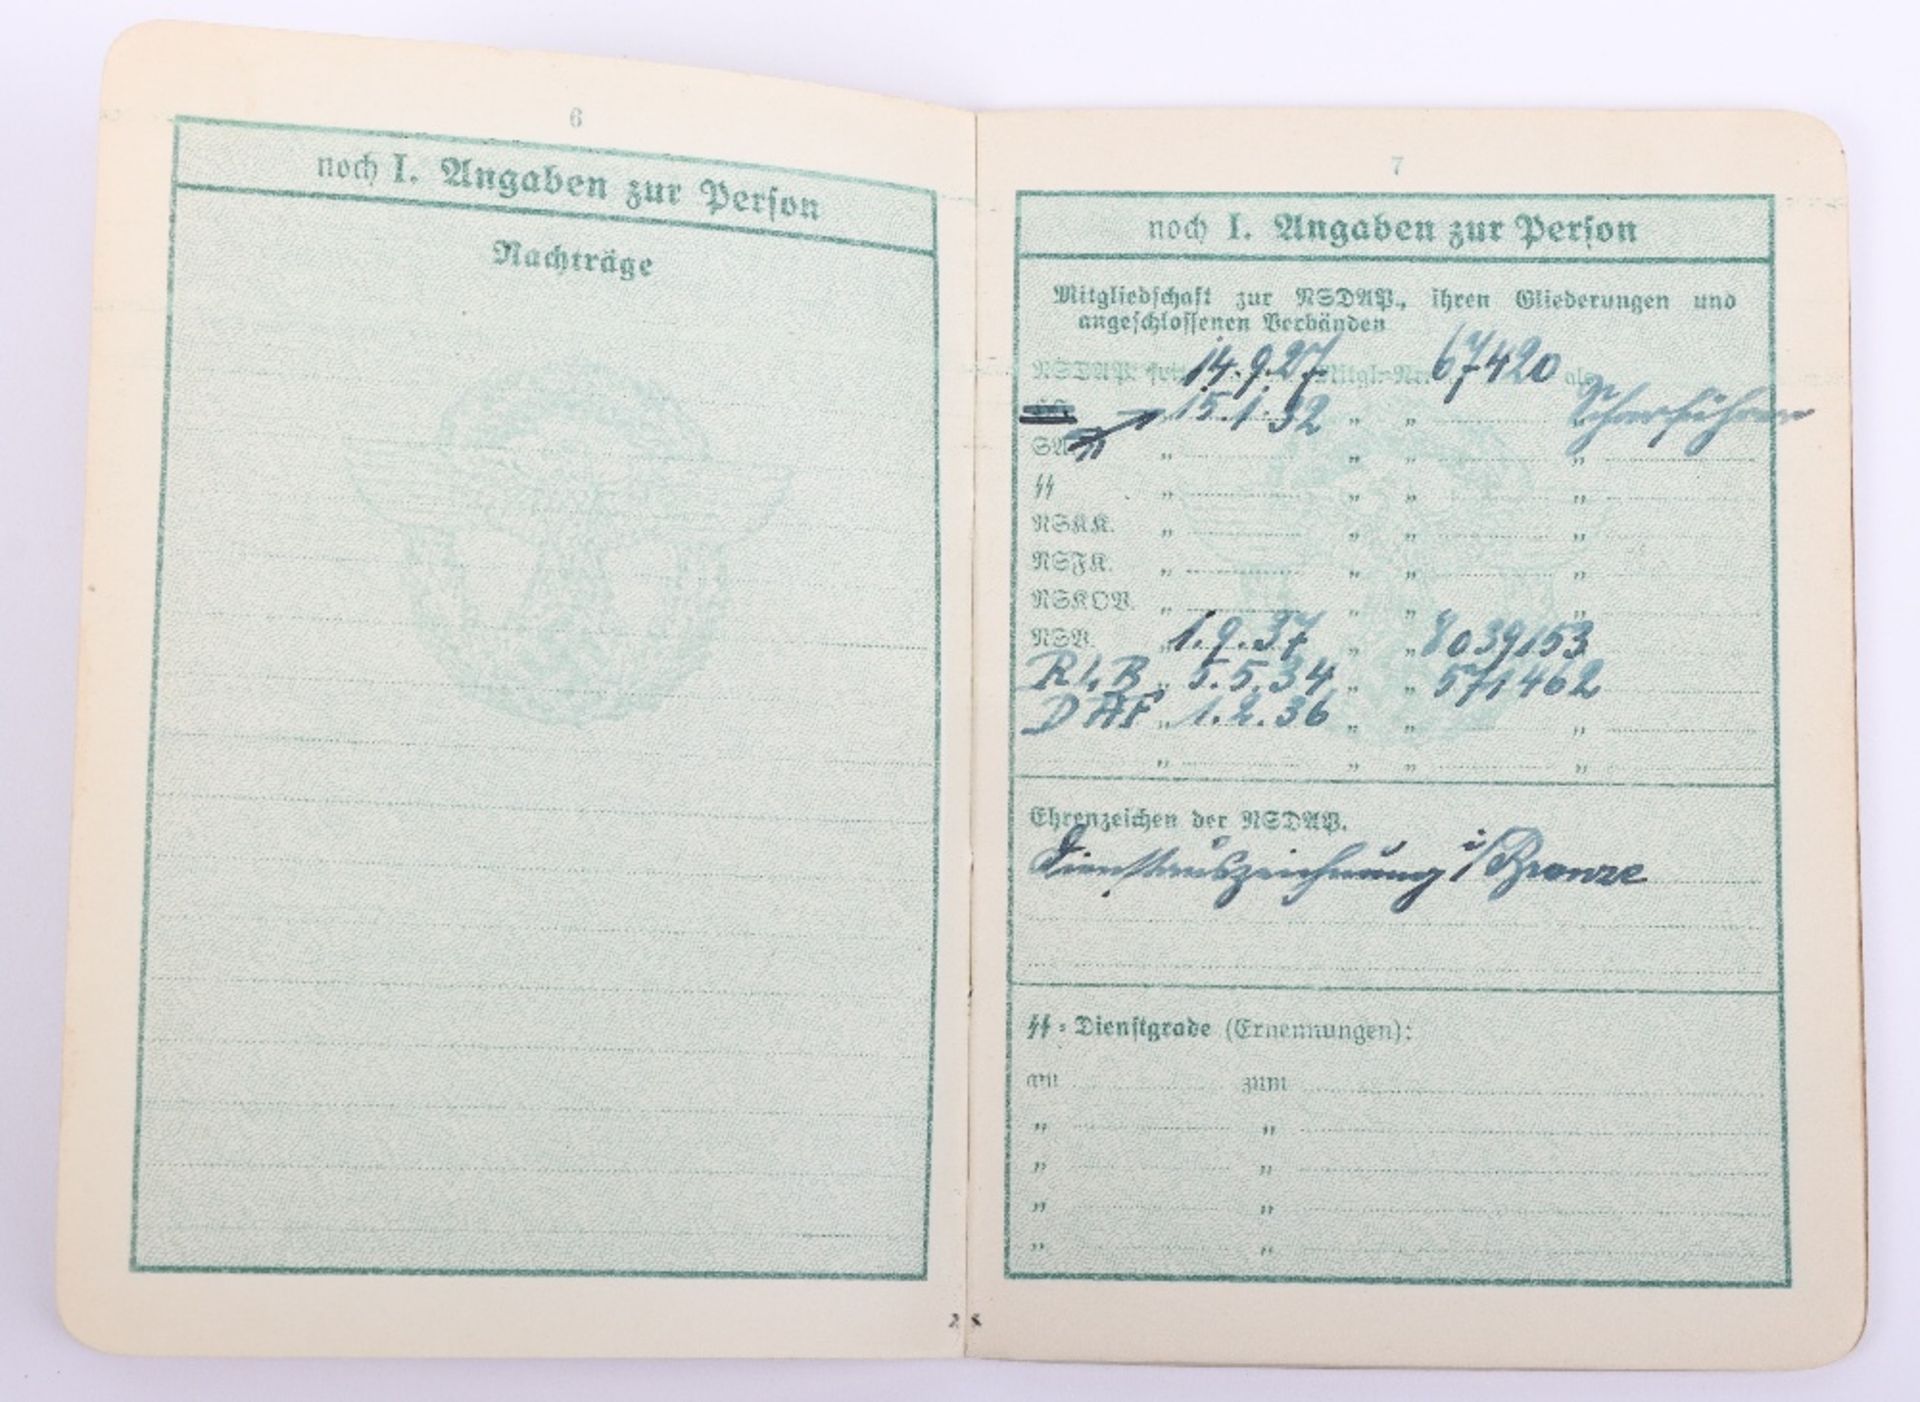 6
noch I. Angaben zur Person
Nachträge
7
noch I. Angaben zur Person
Mitgliedschaft zur NSDAP., ihren Gliederungen und
angeschlossenen Verbänden
NSDAP. seit 14.9.27 Mitgl.-Nr. 67420 als
" 15.1.32 " " " Scharführer
SA " " " "
SS " " " "
NSKK. " " " "
NSFK. " " " "
NSKOV. " " " "
NSV. " 1.9.37 " " 8039153
RLB " 5.5.34 " " 571462
DAF " 1.2.36 " " "
" " " "
Ehrenzeichen der NSDAP.
Dienstauszeichnung i/Bronze
SS-Dienstgrade (Ernennungen):
am zum
" "
" "
" "
" "